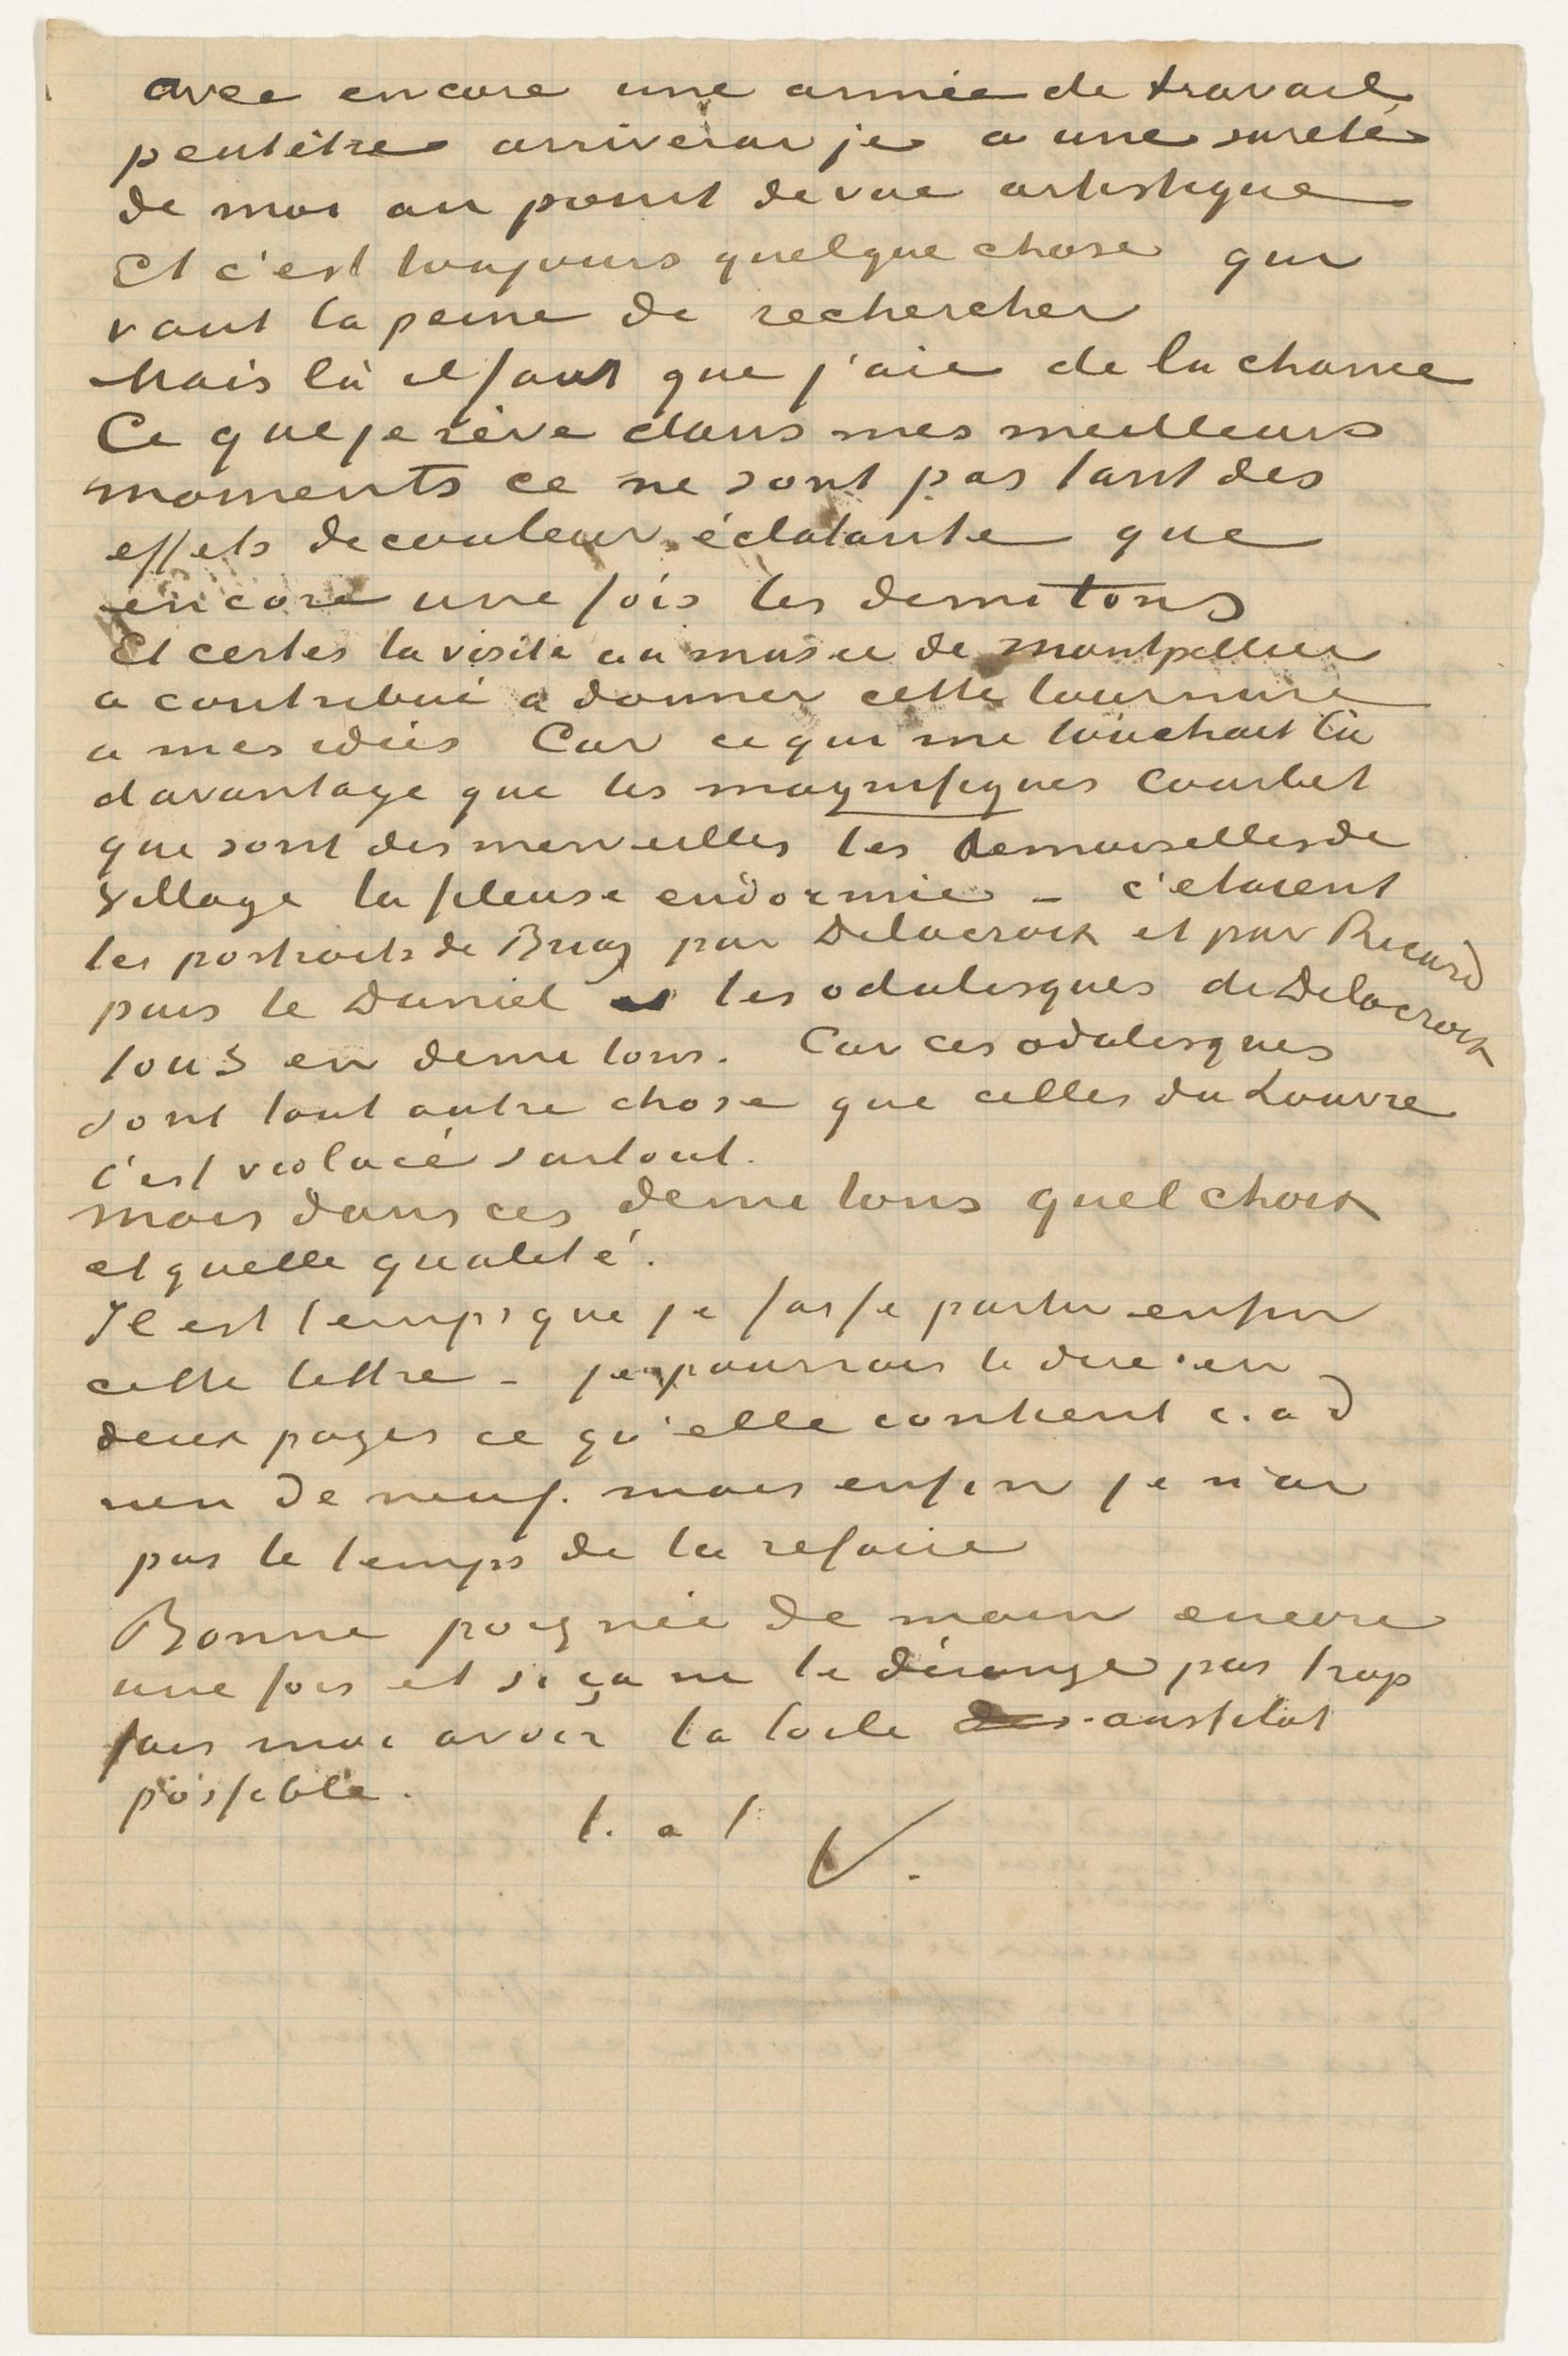 avec encore une année de travail
peutêtre arriverai je a une sureté
de moi au point de vue artistique
Et c'est toujours quelque chose qui
vaut la peine de rechercher
Mais là il faut que j'aie de la chance
Ce que je rève dans mes meilleurs
moments ce ne sont pas tant des
effets de couleur éclatante que
encore une fois les demi tons
Et certes la visite au musée de Montpellier
a contribué a donner cette tournure
a mes idées Car ce qui me touchait là
davantage que les magnifiques Courbet
qui sont des merveilles les Demoiselles de
Village la fileuse endormie – c'etaient
les portraits de Bruas par Delacroix et par Ricard
puis le Daniel et les odalisques de Delacroix
tous en demi tons. Car ces odalisques
sont tout autre chose que celles du Louvre
c'est violacé surtout.
mais dans ces demi tons quel choix
et quelle qualité.
Il est temps que je fasse partir enfin
cette lettre – je pourrais te dire en
deux pages ce qu'elle contient c.a d
rien de neuf. mais enfin je n'ai
pas le temps de la refaire
Bonne poignée de main encore
une fois et si ça ne te dérange pas trop
fais moi avoir la toile aussitot
possible.
t. a t
V.